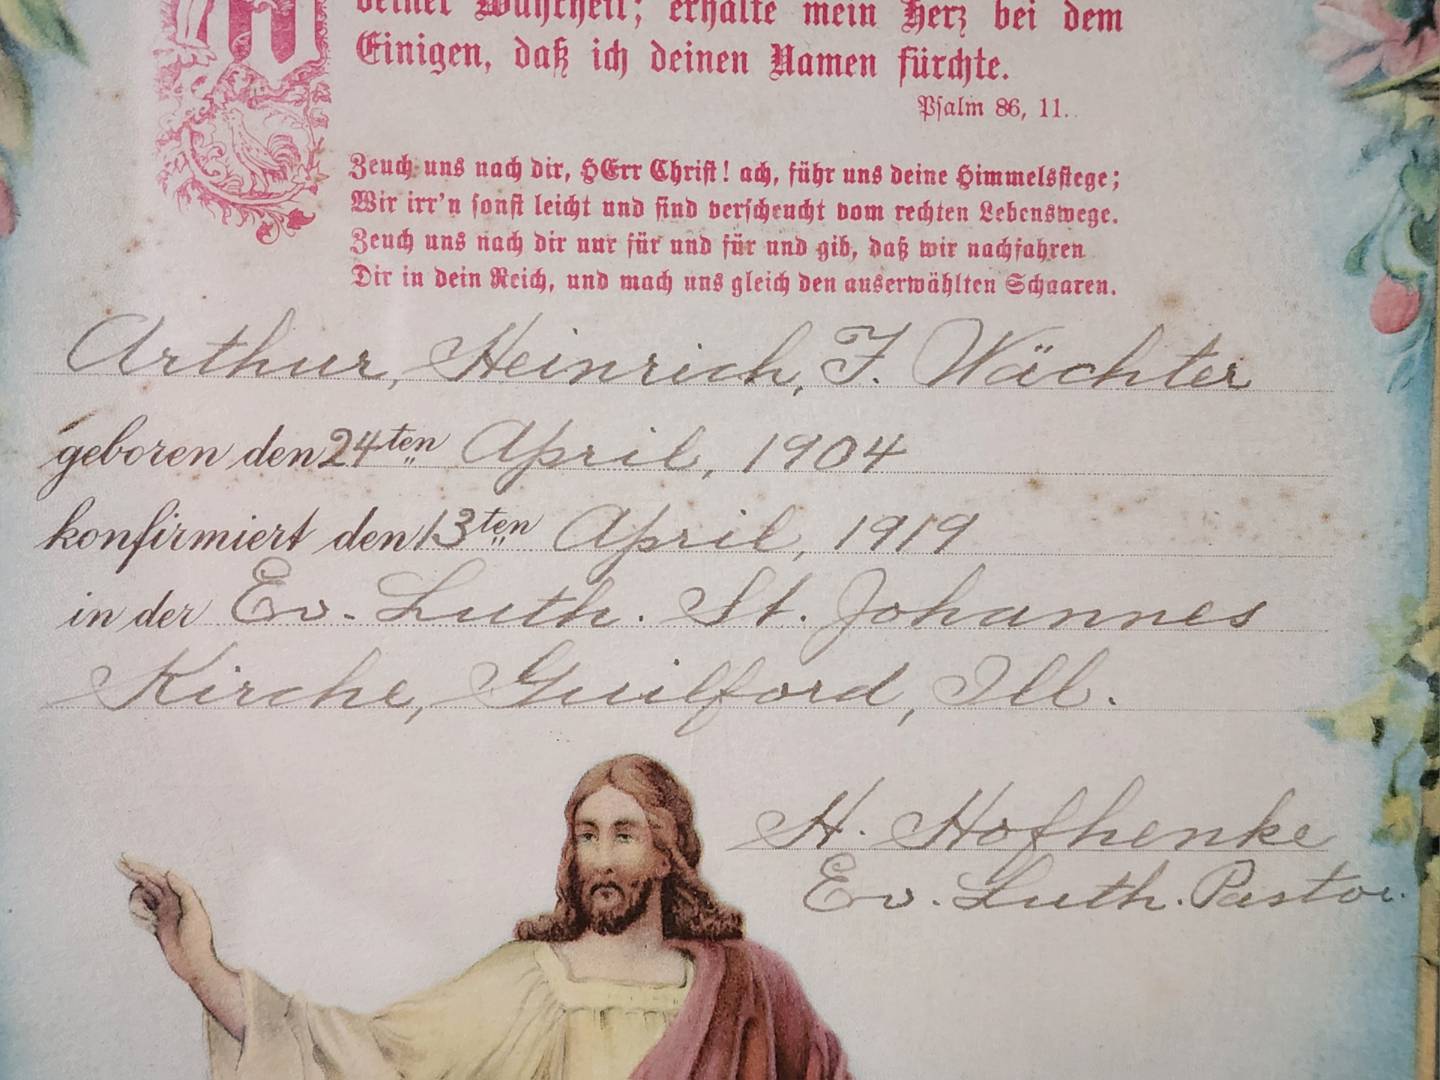 deiner Wahrheit; erhalte mein Herz bei dem
Einigen, daß ich deinen Namen fürchte.
Psalm 86, 11.
Zeuch uns nach dir, HErr Christ! ach, führ uns deine Himmelsstege;
Wir irr'n sonst leicht und sind verscheucht vom rechten Lebenswege.
Zeuch uns nach dir nur für und für und gib, daß wir nachfahren
Dir in dein Reich, und mach uns gleich den auserwählten Schaaren.
Arthur, Heinrich, F. Wächter
geboren den 24ten April, 1904
konfirmiert den 13ten April, 1919
in der Ev. Luth. St. Johannes
Kirche, Guilford, Ill.
H. Hofhenke
Ev. Luth. Pastor.